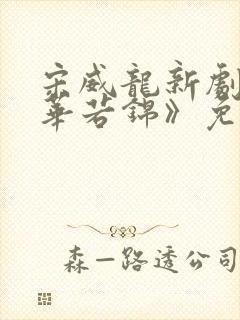 宋威龍新劇
華若錦》免
森一路透公司